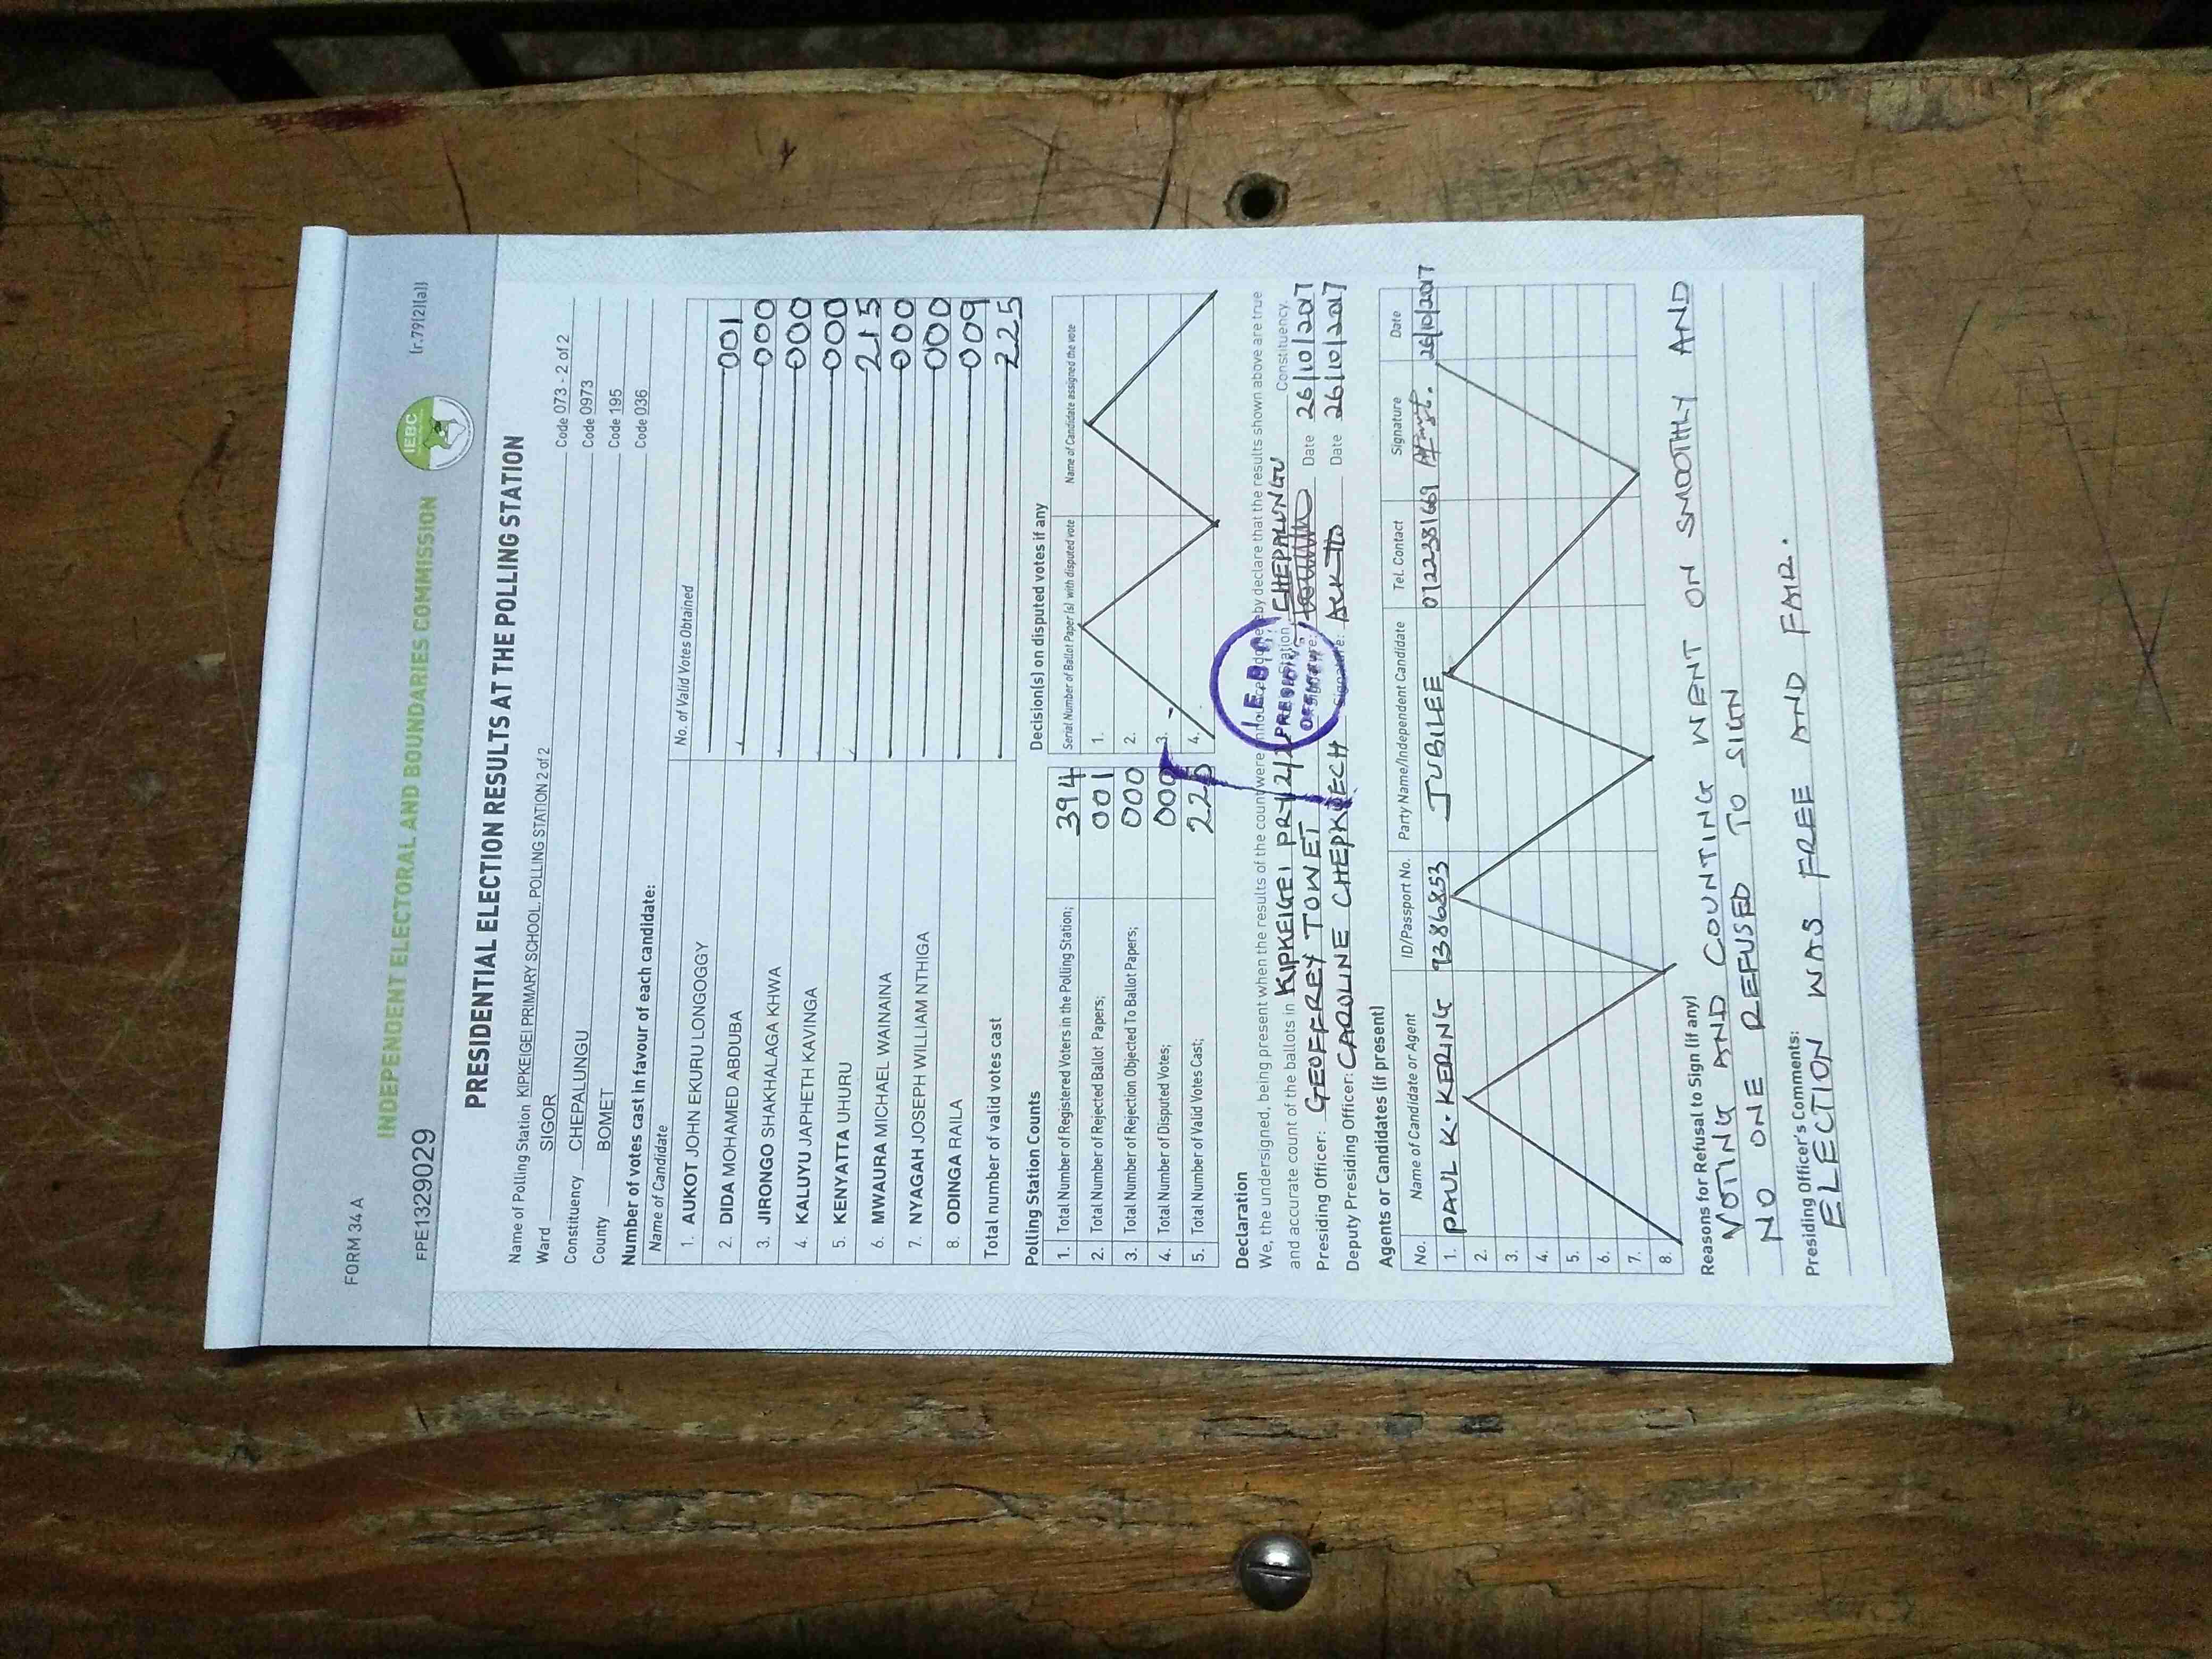 FORM 34 A
(r.79(2)(a))
FPE1329029
INDEPENDENT ELECTORAL AND BOUNDARIES COMMISSION
IEBC
PRESIDENTIAL ELECTION RESULTS AT THE POLLING STATION
Name of Polling Station KIPKEIGEI PRIMARY SCHOOL. POLLING STATION 2 of 2 Code 073 - 2 of 2
Ward SIGOR Code 0973
Constituency CHEPALUNGU Code 195
County BOMET Code 036
Number of votes cast in favour of each candidate:
Name of Candidate No. of Valid Votes Obtained
1. AUKOT JOHN EKURU LONGOGGY 001
2. DIDA MOHAMED ABDUBA 000
3. JIRONGO SHAKHALAGA KHWA 000
4. KALUYU JAPHETH KAVINGA 000
5. KENYATTA UHURU 215
6. MWAURA MICHAEL WAINAINA 000
7. NYAGAH JOSEPH WILLIAM NTHIGA 000
8. ODINGA RAILA 009
Total number of valid votes cast 225
Polling Station Counts
1. Total Number of Registered Voters in the Polling Station; 394
2. Total Number of Rejected Ballot Papers; 001
3. Total Number of Rejection Objected To Ballot Papers; 000
4. Total Number of Disputed Votes; 000
5. Total Number of Valid Votes Cast; 225
Decision(s) on disputed votes if any
Serial Number of Ballot Paper (s) with disputed vote Name of Candidate assigned the vote
1.
2.
3.
4.
Declaration
We, the undersigned, being present when the results of the count were announced, do hereby declare that the results shown above are true
and accurate count of the ballots in KIPKEIGEI PRY 2/2 Polling Station, CHEPALUNGU Constituency.
Presiding Officer: GEOFFREY TOWET Signature: Date 26/10/2017
Deputy Presiding Officer: CAROLINE CHEPKWECH Signature: Date 26/10/2017
I.E.B.C
PRESIDING
OFFICER
Agents or Candidates (if present)
No. Name of Candidate or Agent ID/Passport No. Party Name/Independent Candidate Tel. Contact Signature Date
1. PAUL K. KERING 9386853 JUBILEE 0722381669 26/10/2017
2.
3.
4.
5.
6.
7.
8.
Reasons for Refusal to Sign (if any)
VOTING AND COUNTING WENT ON SMOOTHLY AND
NO ONE REFUSED TO SIGN
Presiding Officer's Comments:
ELECTION WAS FREE AND FAIR.